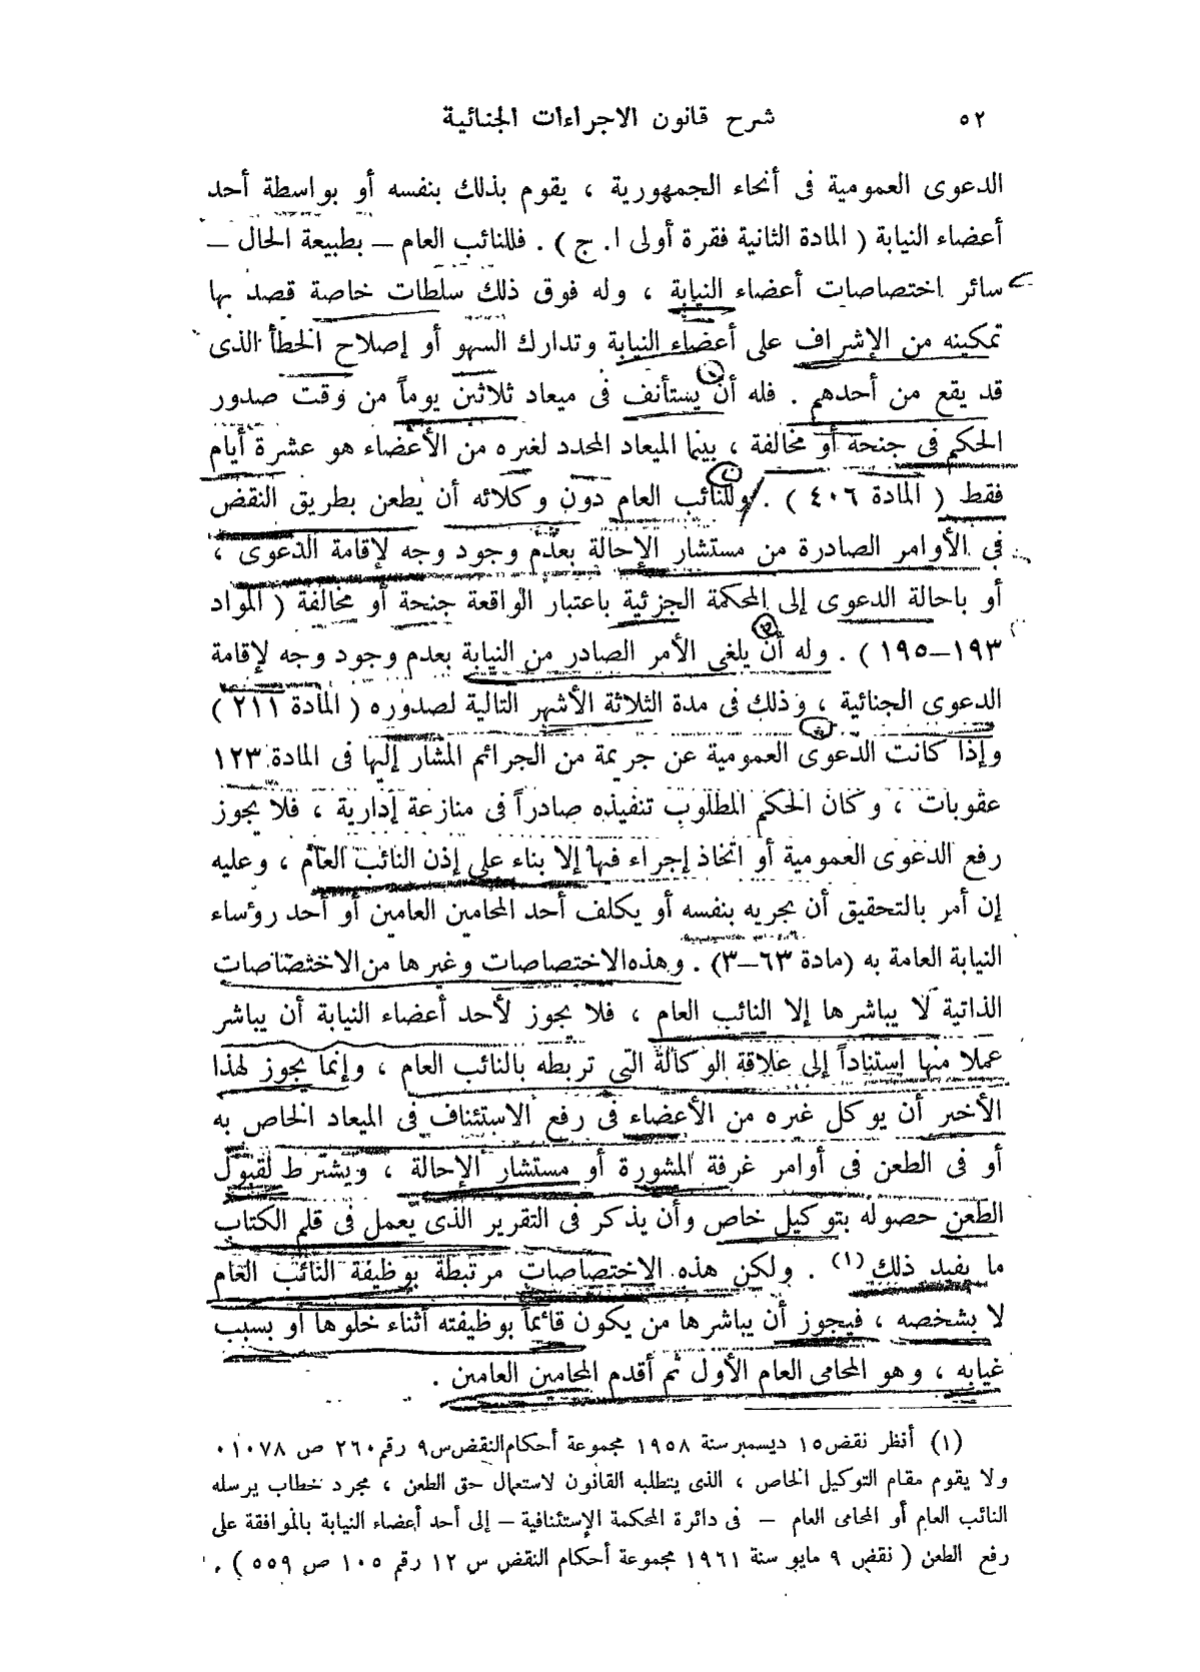 ٥٢
شرح قانون الاجراءات الجنائية
الدعوى العمومية فى أنحاء الجمهورية ، يقوم بذلك بنفسه أو بواسطة أحد
أعضاء النيابة ( المادة الثانية فقرة أولى ا. ج ) . فللنائب العام – بطبيعة الحال –
سائر اختصاصات أعضاء النيابة ، وله فوق ذلك سلطات خاصة قصد بها
تمكينه من الإشراف على أعضاء النيابة وتدارك السهو أو إصلاح الخطأ الذى
قد يقع من أحدهم . فله أن يستأنف فى ميعاد ثلاثين يوماً من وقت صدور
الحكم فى جنحة أو مخالفة ، بينما الميعاد المحدد لغيره من الأعضاء هو عشرة أيام
فقط ( المادة ٤٠٦ ) . وللنائب العام دون وكلائه أن يطعن بطريق النقض
فى الأوامر الصادرة من مستشار الإحالة بعدم وجود وجه لإقامة الدعوى ،
أو باحالة الدعوى إلى المحكمة الجزئية باعتبار الواقعة جنحة أو مخالفة ( المواد
١٩٣–١٩٥ ) . وله أن يلغى الأمر الصادر من النيابة بعدم وجود وجه لإقامة
الدعوى الجنائية ، وذلك فى مدة الثلاثة الأشهر التالية لصدوره ( المادة ٢١١ )
وإذا كانت الدعوى العمومية عن جريمة من الجرائم المشار إليها فى المادة ١٢٣
عقوبات ، وكان الحكم المطلوب تنفيذه صادراً فى منازعة إدارية ، فلا يجوز
رفع الدعوى العمومية أو اتخاذ إجراء فيها إلا بناء على إذن النائب العام ، وعليه
إن أمر بالتحقيق أن يجريه بنفسه أو يكلف أحد المحامين العامين أو أحد رؤساء
النيابة العامة به (مادة ٦٣–٣) . وهذه الاختصاصات وغيرها من الاختصاصات
الذاتية لا يباشرها إلا النائب العام ، فلا يجوز لأحد أعضاء النيابة أن يباشر
عملا منها استناداً إلى علاقة الوكالة التى تربطه بالنائب العام ، وإنما يجوز لهذا
الأخير أن يوكل غيره من الأعضاء فى رفع الاستئناف فى الميعاد الخاص به
أو فى الطعن فى أوامر غرفة المشورة أو مستشار الإحالة ، ويشترط لقبول
الطعن حصوله بتوكيل خاص وأن يذكر فى التقرير الذى يعمل فى قلم الكتاب
ما يفيد ذلك (١) . ولكن هذه الاختصاصات مرتبطة بوظيفة النائب العام
لا بشخصه ، فيجوز أن يباشرها من يكون قائماً بوظيفته أثناء خلوها أو بسبب
غيابه ، وهو المحامى العام الأول ثم أقدم المحامين العامين .
(١) أنظر نقض ١٥ ديسمبر سنة ١٩٥٨ مجموعة أحكام النقض س٩ رقم ٢٦٠ ص ١٠٧٨ .
ولا يقوم مقام التوكيل الخاص ، الذى يتطلبه القانون لاستعمال حق الطعن ، مجرد خطاب يرسله
النائب العام أو المحامى العام – فى دائرة المحكمة الإستئنافية – إلى أحد أعضاء النيابة بالموافقة على
رفع الطعن ( نقض ٩ مايو سنة ١٩٦١ مجموعة أحكام النقض س ١٢ رقم ١٠٥ ص ٥٥٩ ) .